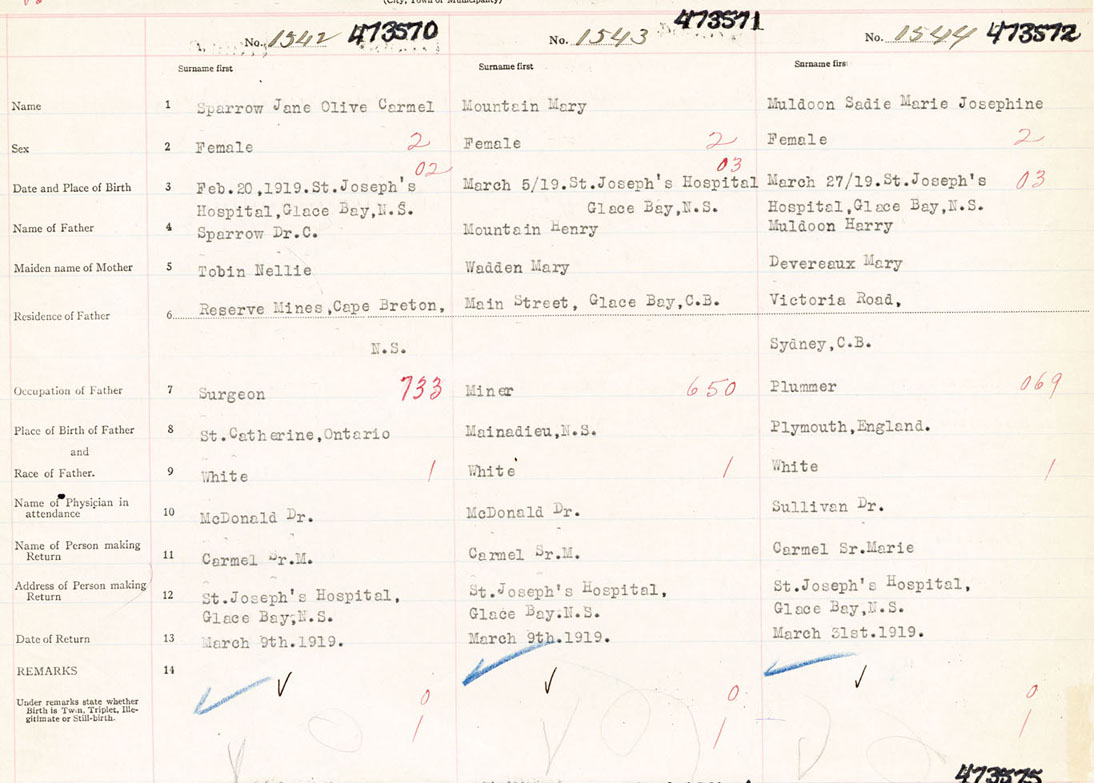 (City, Town or Municipality)
No. 1542 473570
No. 1543 473571
No. 1544 473572
Surname first Surname first Surname first
Name 1 Sparrow Jane Olive Carmel Mountain Mary Muldoon Sadie Marie Josephine
Sex 2 Female 2 Female 2 Female 2
02 03
Date and Place of Birth 3 Feb.20,1919.St.Joseph's March 5/19.St.Joseph's Hospital March 27/19.St.Joseph's 03
Hospital,Glace Bay,N.S. Glace Bay,N.S. Hospital,Glace Bay,N.S.
Name of Father 4 Sparrow Dr.C. Mountain Henry Muldoon Harry
Maiden name of Mother 5 Tobin Nellie Wadden Mary Devereaux Mary
Residence of Father 6 Reserve Mines,Cape Breton, Main Street, Glace Bay,C.B. Victoria Road,
N.S. Sydney,C.B.
Occupation of Father 7 Surgeon 733 Miner 650 Plummer 069
Place of Birth of Father 8 St.Catherine,Ontario Mainadieu,N.S. Plymouth,England.
and
Race of Father. 9 White 1 White 1 White 1
Name of Physician in
attendance 10 McDonald Dr. McDonald Dr. Sullivan Dr.
Name of Person making
Return 11 Carmel Sr.M. Carmel Sr.M. Carmel Sr.Marie
Address of Person making
Return 12 St.Joseph's Hospital, St.Joseph's Hospital, St.Joseph's Hospital,
Glace Bay,N.S. Glace Bay.N.S. Glace Bay,N.S.
Date of Return 13 March 9th.1919. March 9th.1919. March 31st.1919.
REMARKS 14
Under remarks state whether
Birth is Twin, Triplet, Ille-
gitimate or Still-birth.
0 0 0
1 1 1
473575